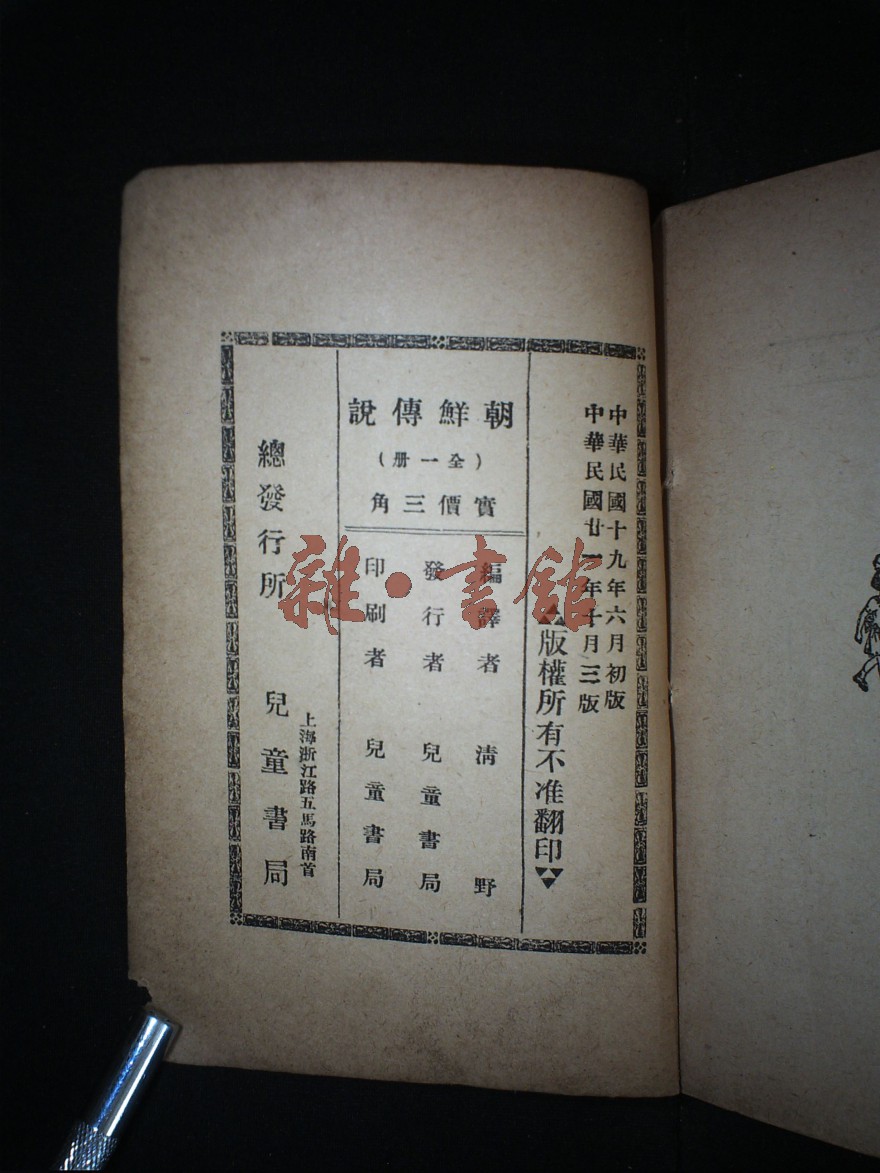 中華民國十九年六月初版
中華民國廿一年十月三版
版權所有不准翻印
朝鮮傳說
(全一册)
實價三角
編譯者 清野
發行者 兒童書局
印刷者 兒童書局
上海浙江路五馬路南首
總發行所 兒童書局
雜·書館